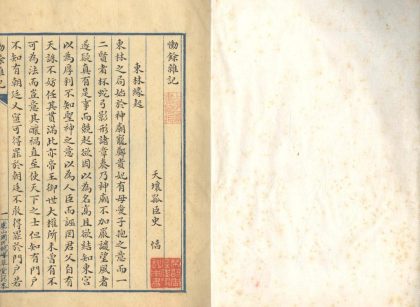 慟餘雜記
東林緣起
天壤孤臣史 惇
東林之局始於神廟寵鄭貴妃有母愛子抱之意而一
二賢者杯蛇弓影形諸章奏乃神廟不加嚴譴望風者
遂疑真有是事而競起欲因以為名高且欲結知東宮
以為厚利不知聖神之意以為人臣而誣罔君父自有
天誅不妨任其貫滿此亦帝王御世大權所未嘗有不
可為法而豈意其釀禍直至使天下之士但知有門戶
不知有朝廷人寧可得罪於朝廷不敢得罪於門戶者
慟餘雜記
一